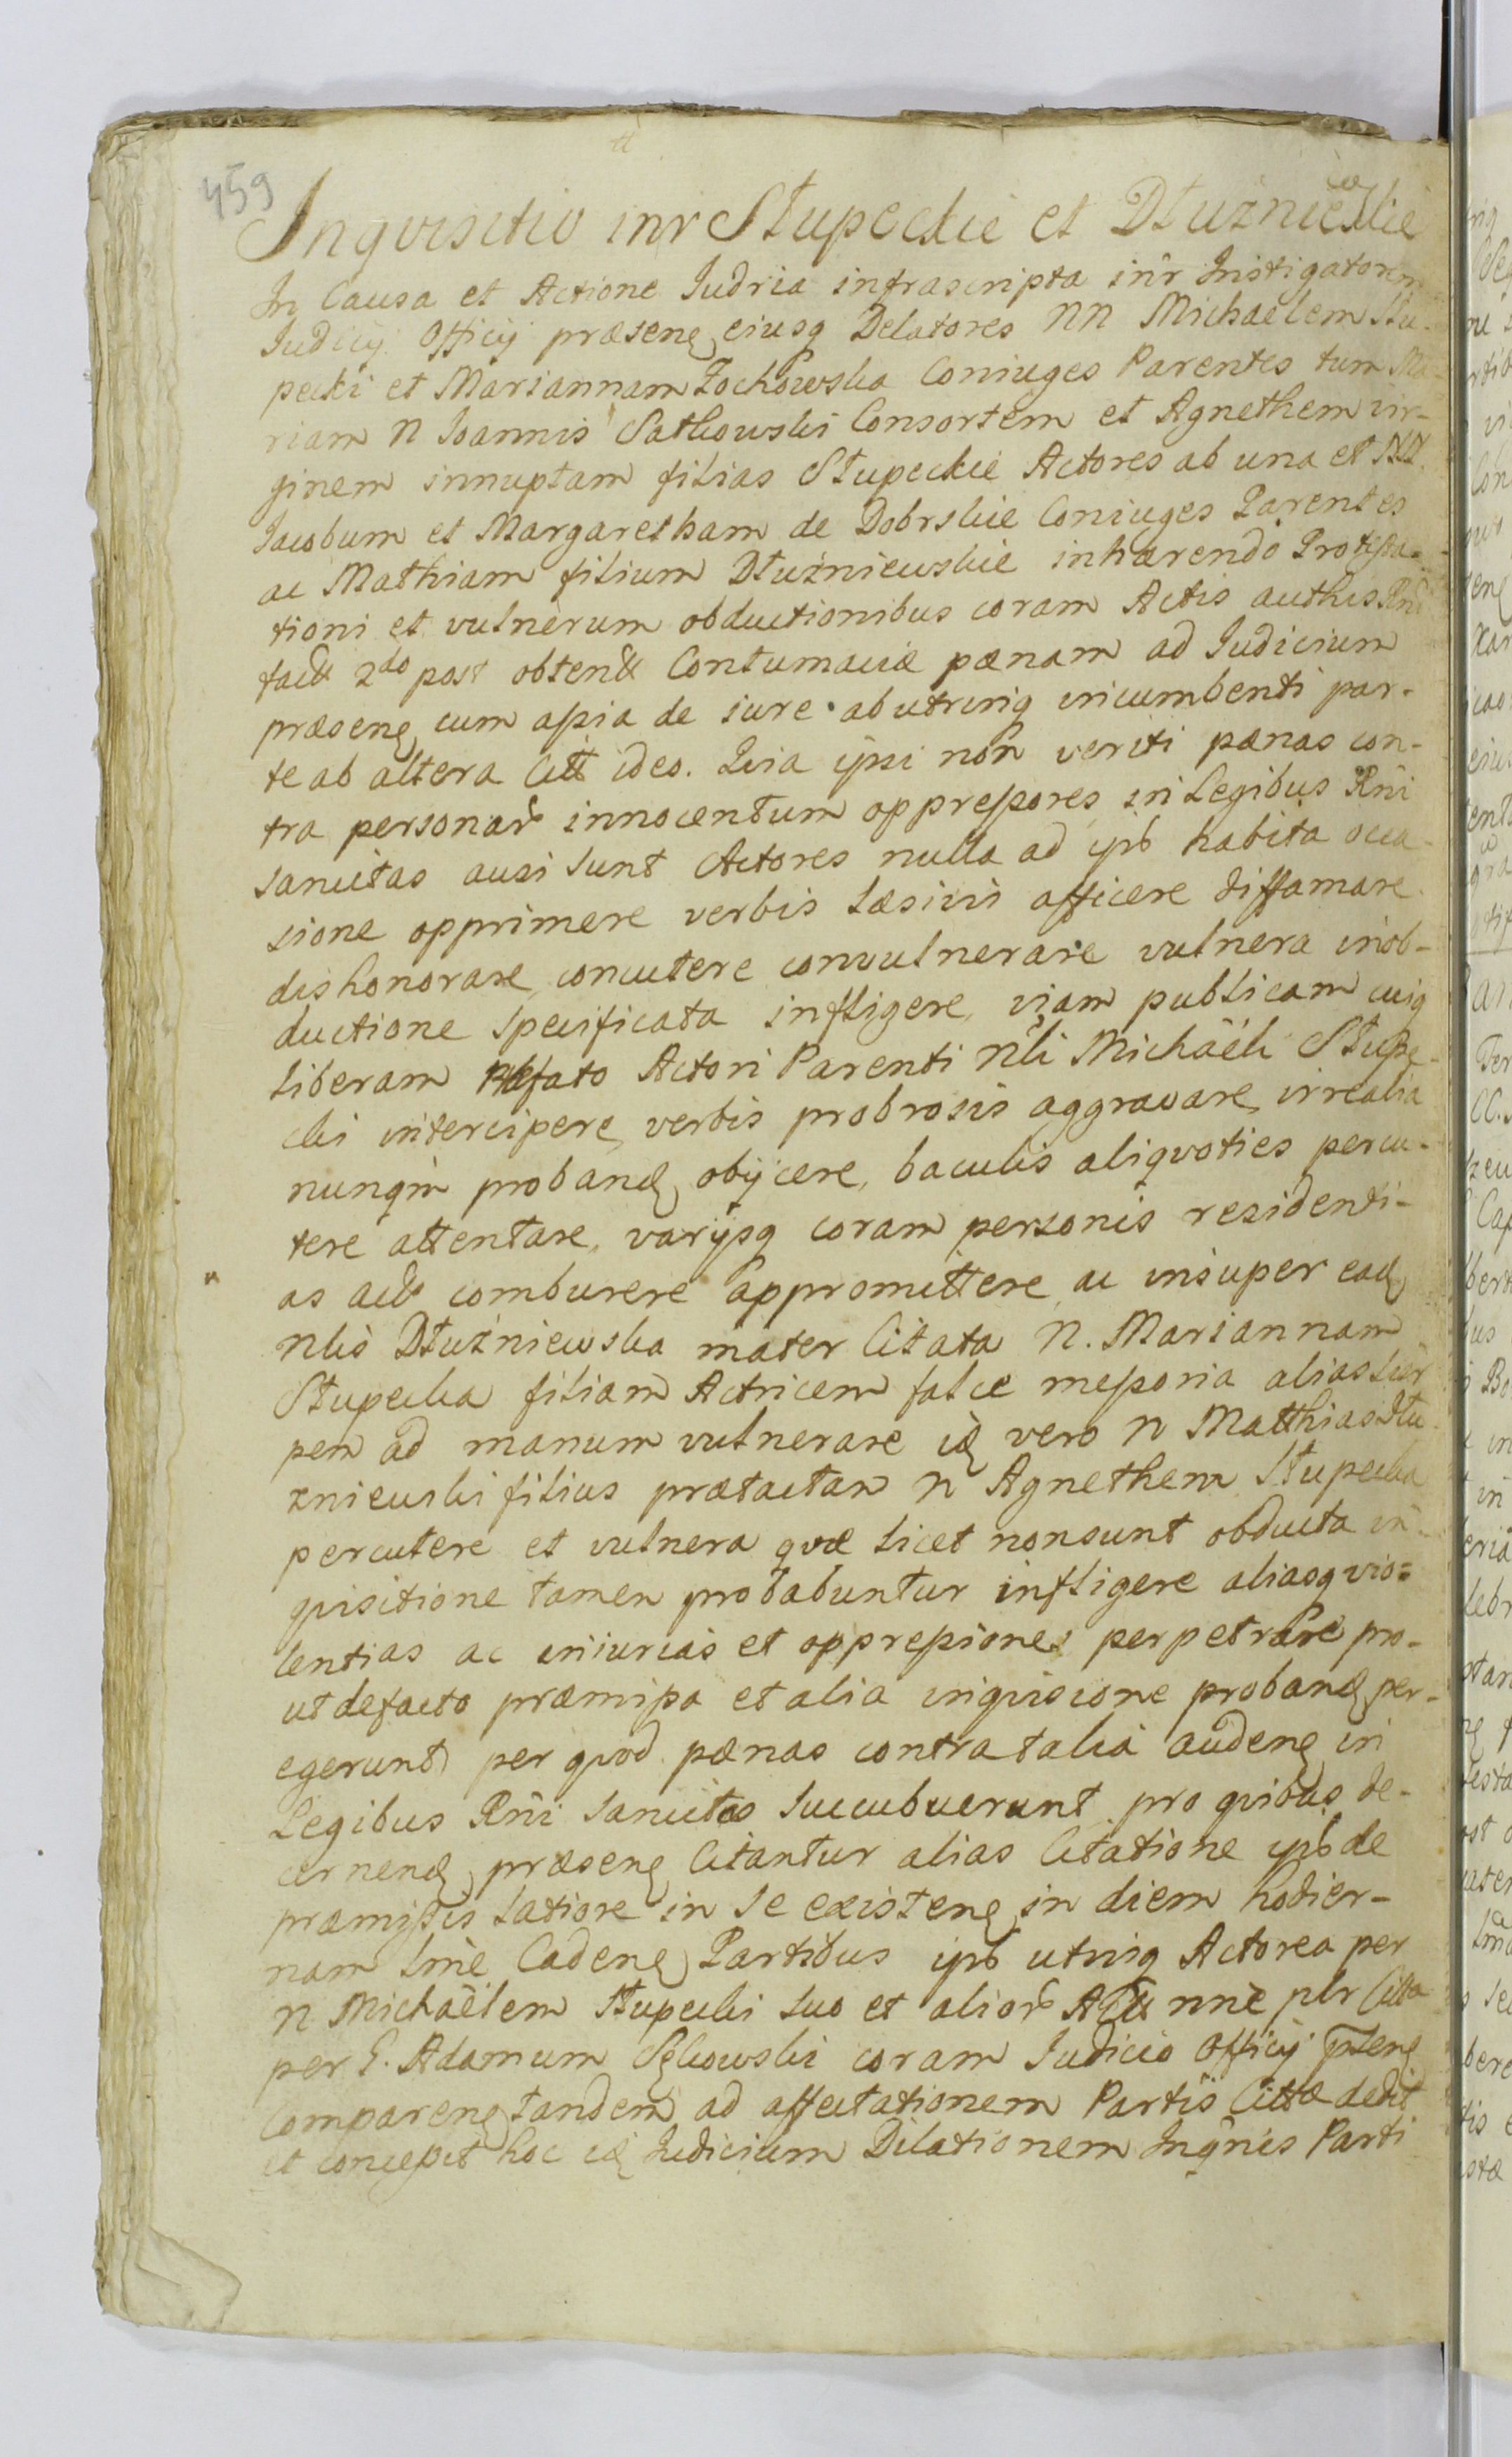 459
Inquisitio inr Słupeckie et Dłuźniewskie
In Causa et Actione Iudria infrascripta inr Instigatorem
Iudicij Officij præsenę eiusq Delatores NN Michaelem Słu-
pecki et Mariannam Żochowska Coniuges Parentes tum Ma-
riam N Ioannis Satkowski Consortem et Agnethem vir-
ginem innuptam filias Słupeckie Actores ab una et NN.
Iacobum et Margaretham de Dobrskie Coniuges Parentes
ac Mathiam filium Dłuźniewskie inhærendo Protesta-
tioni et vulnerum obductionibus coram Actis authis Rni
fact 2do post obtent Contumaciæ pænam ad Iudicium
præsenę cum assia de iure ab utrinq incumbenti par-
te ab altera Citt ideo. Quia ipsi non veriti pænas con-
tra personar innocentum oppressores in Legibus Rni
sancitas ausi sunt Actores nulla ad ipb habita occa-
sione opprimere verbis læsivis afficere diffamare
dishonorare, concutere convulnerare vulnera in ob-
ductione specificata infligere, viam publicam cuiq
liberam præfato Actori Parenti Nli Michaëli Słupe-
cki intercipere, verbis probrosis aggravare, irrealia
nunqm probandę obijcere, baculis aliqvoties percu-
tere attentare, varijsq coram personis residenti-
as act comburere appromittere, ac insuper eadę
Nlis Dłuźniewska mater Citata N. Mariannam
Słupecka filiam Actricem falce messoria alias sier
pem ad manum vulnerare idę vero N Matthias Dłu
zniewski filius prætactam N Agnethem Słupecka
percutere et vulnera qvæ licet non sunt obducta in-
qvisitione tamen probabuntur infligere aliasq vio=
lentias ac iniurias et oppressiones perpetrare pro-
ut de facto præmissa et alia inqvisione probandę per-
egerunt per qvod pænas contra talia audenę in
Legibus Rni sancitas succubuerunt pro qvibus de-
cernendę præsenę Citantur alias Citatione ipb de
præmissis latiore in se existenę in diem hodier-
nam lme Cadenę Partibus ipb utrinq Actorea per
N Michaëlem Słupecki suo et alior Att nne plr Citta
per G. Adamum Sękowski coram Iudicio Officij psenę
Comparenę tandem ad affectationem Partis Cittæ dedit
et concepit hoc idę Iudicium Dilationem Inqnis Parti